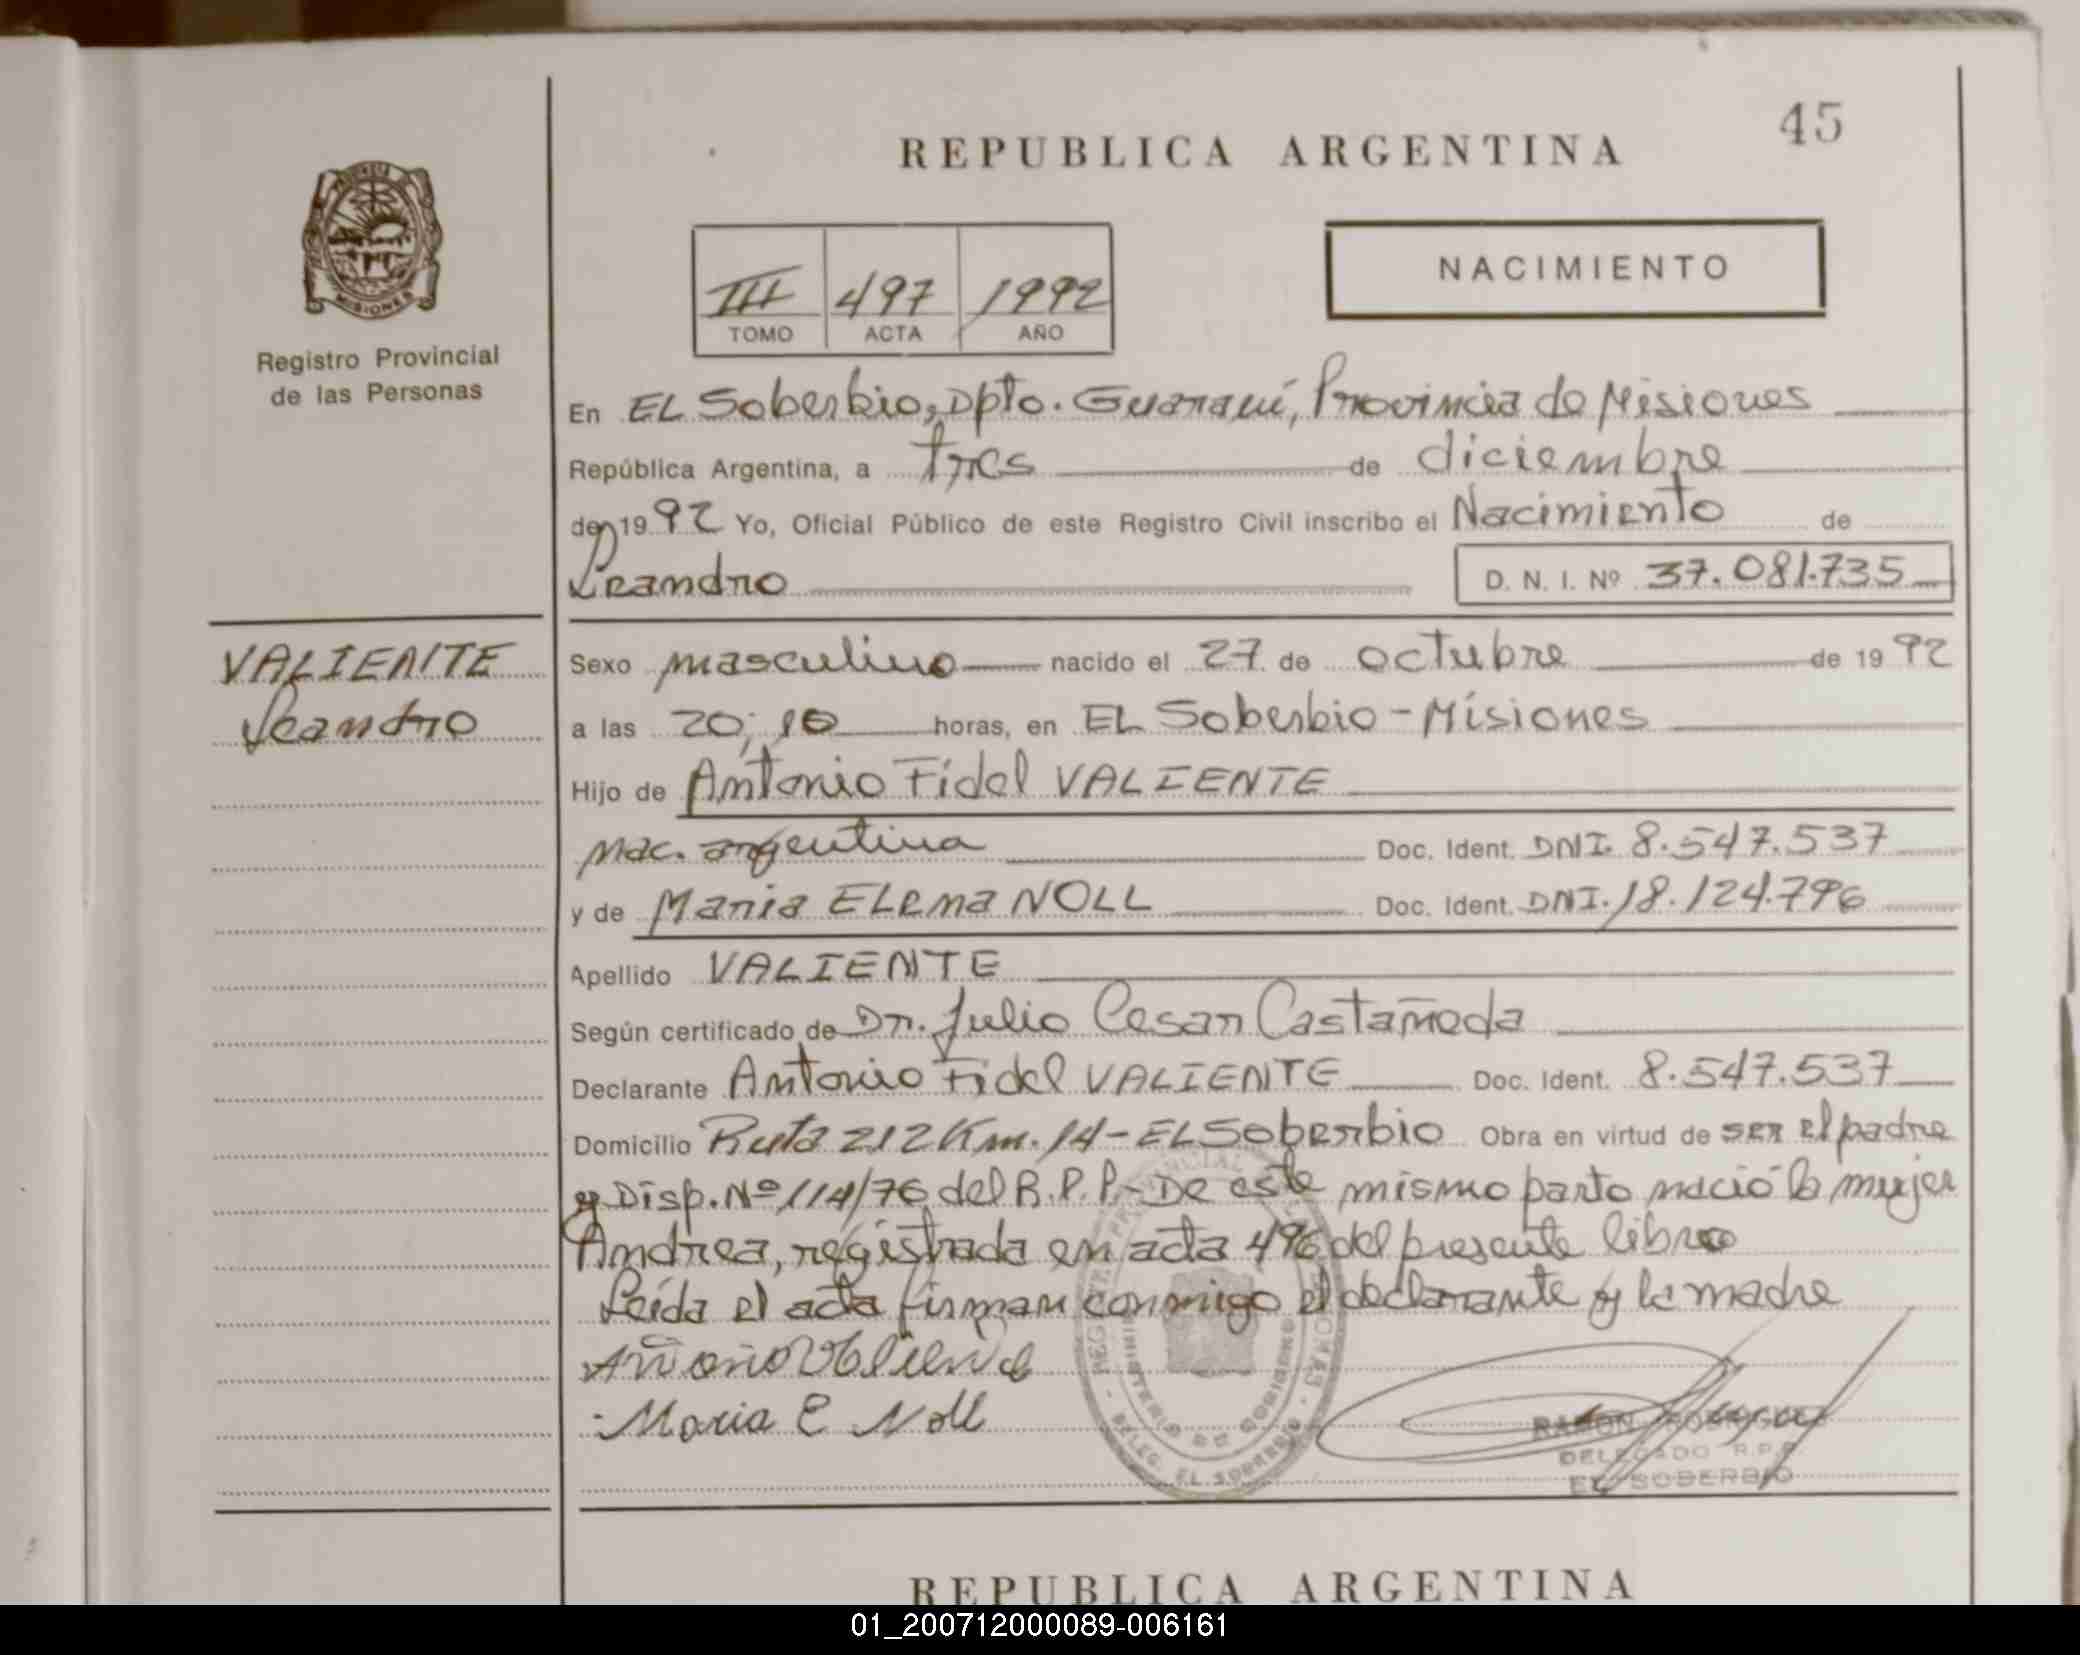 45
REPUBLICA ARGENTINA
III 497 1992
TOMO ACTA AÑO
NACIMIENTO
MISIONES
Registro Provincial
de las Personas
En EL Soberbio, Dpto. Guaraní, Provincia de Misiones
República Argentina, a tres de diciembre
de 1992 Yo, Oficial Público de este Registro Civil inscribo el Nacimiento de
Leandro D. N. I. Nº 37.081.735
VALIENTE
Leandro
Sexo masculino nacido el 27 de octubre de 1992
a las 20,10 horas, en EL Soberbio - Misiones
Hijo de Antonio Fidel VALIENTE
nac. argentina Doc. Ident. DNI. 8.547.537
y de Maria ELena NOLL Doc. Ident. DNI. 18.124.796
Apellido VALIENTE
Según certificado de Dr. Julio Cesar Castañeda
Declarante Antonio Fidel VALIENTE Doc. Ident. 8.547.537
Domicilio Ruta 212 Km. 14 - EL Soberbio Obra en virtud de ser el padre
y Disp. Nº 114/76 del R.P.P.- De este mismo parto nació la mujer
Andrea, registrada en acta 496 del presente libro
Leída el acta firman conmigo el declarante y la madre
Maria E Noll
RAMON RODRIGUEZ
DELEGADO R.P.P.
EL SOBERBIO
DELEG. EL SOBERBIO
REPUBLICA ARGENTINA
01_200712000089-006161